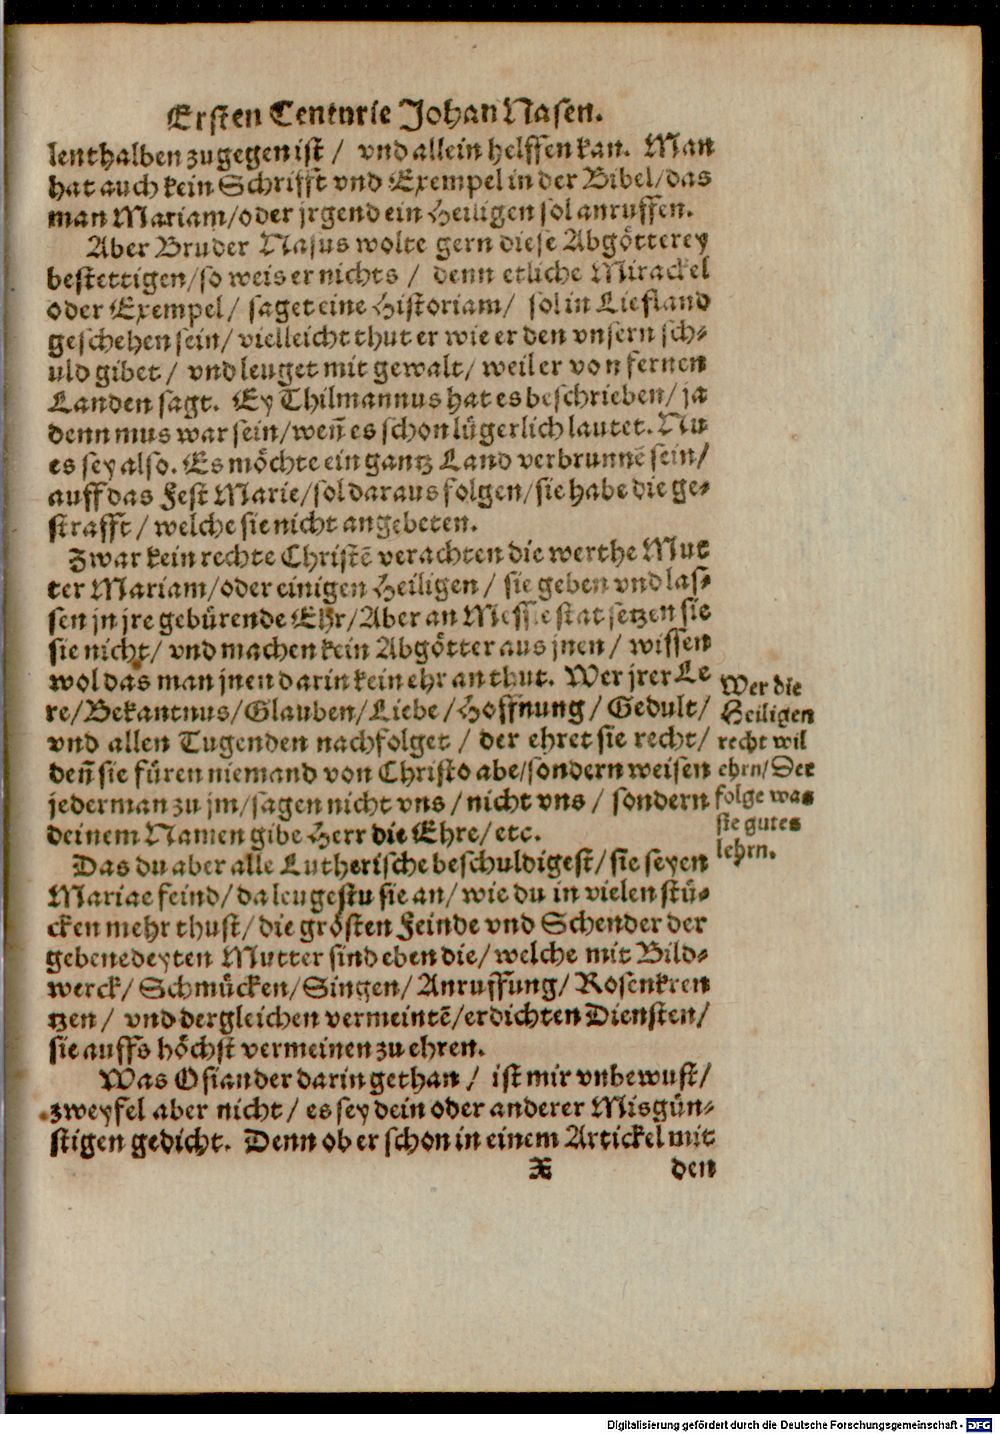 Ersten Centurie Johan Nasen.
lenthalben zugegen ist / vnd allein helffen kan. Man
hat auch kein Schrifft vnd Exempel in der Bibel/das
man Mariam/oder jrgend ein Heiligen sol anruffen.
Aber Bruder Nasus wolte gern diese Abgötterey
bestettigen/so weis er nichts / denn etliche Mirackel
oder Exempel/ saget eine Historiam/ sol in Liefland
geschehen sein/ vielleicht thut er wie er den vnsern sch-
uld gibet / vnd leuget mit gewalt/ weil er von fernen
Landen sagt. Ey Thilmannus hat es beschrieben/ ja
denn mus war sein/weñ es schon lügerlich lautet. Nu
es sey also. Es möchte ein gantz Land verbrunnē sein/
auff das Fest Marie/sol daraus folgen/sie habe die ge-
strafft / welche sie nicht angebeten.
Zwar kein rechte Christē verachten die werthe Mut
ter Mariam/oder einigen Heiligen / sie geben vnd las-
sen jn jre gebürende Ehr/Aber an Messie stat setzen sie
sie nicht/ vnd machen kein Abgötter aus jnen / wissen
wol das man jnen darin kein ehr an thut. Wer jrer Le
re/Bekantnus/Glauben/Liebe/Hoffnung/Gedult/
vnd allen Tugenden nachfolget / der ehret sie recht/
deñ sie füren niemand von Christo abe/sondern weisen
jederman zu jm/sagen nicht vns / nicht vns / sondern
deinem Namen gibe Herr die Ehre/etc.
Wer die
Heiligen
recht wil
ehrn/Der
folge was
sie gutes
lehrn.
Das du aber alle Lutherische beschuldigest/sie seyen
Mariae feind/da leugestu sie an/ wie du in vielen stü-
cken mehr thust/die grösten Feinde vnd Schender der
gebenedeyten Mutter sind eben die/ welche mit Bild-
werck/ Schmücken/Singen/ Anruffung/ Rosenkren
tzen / vnd dergleichen vermeintē/erdichten Diensten/
sie auffs höchst vermeinen zu ehren.
Was Osiander darin gethan / ist mir vnbewust/
zweyfel aber nicht / es sey dein oder anderer Misgün-
stigen gedicht. Denn ob er schon in einem Artickel mit
X den
Digitalisierung gefördert durch die Deutsche Forschungsgemeinschaft - DFG